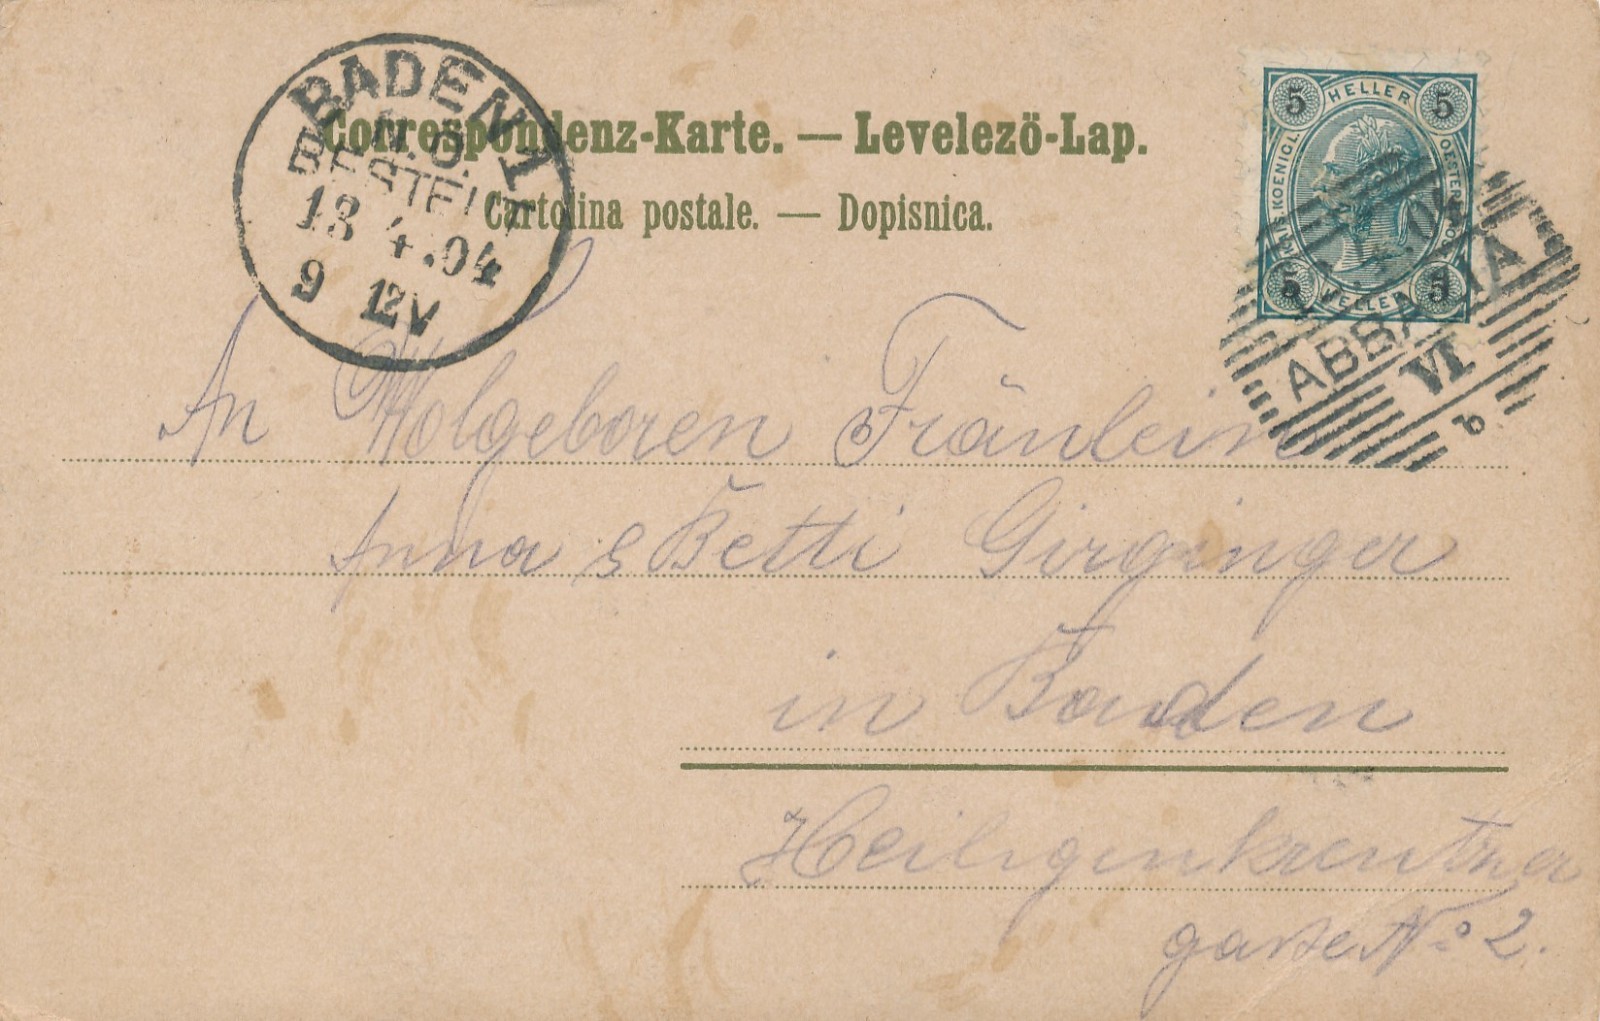 Correspondenz-Karte. — Levelezö-Lap.
Cartolina postale. — Dopisnica.
BADEN 1
N.Ö.
BESTELLT
13 4.04
9 12V
5 HELLER 5
KAIS. KOENIGL. OESTERR. POST
5 HELLER 5
ABBAZIA
VI
b
An Wolgeboren Fräulein
Anna & Betti Girginger
in Baden
Heiligenkreutzner
gasse No 2.